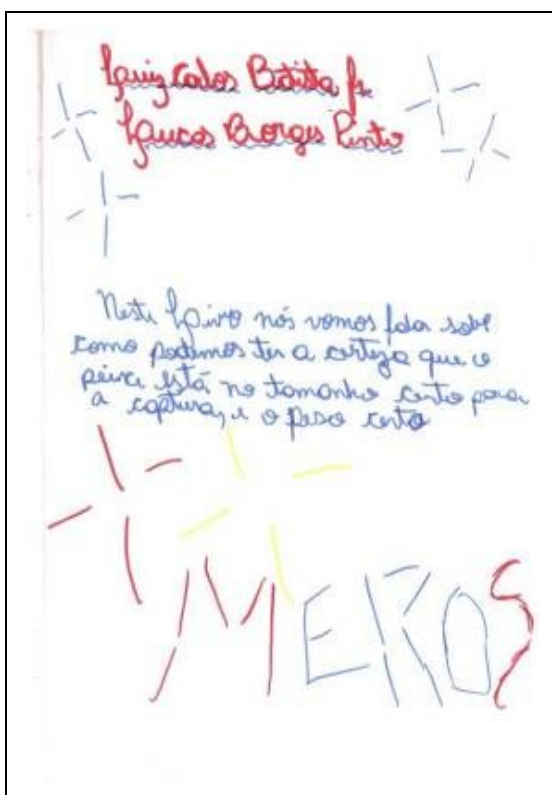 Luiz Carlos Batista Jr
Lucas Borges Pinto
Neste Livro nós vamos falar sobre
como podemos ter a certeza que o
peixe está no tamanho certo para
a captura, e o peso certo
MEROS